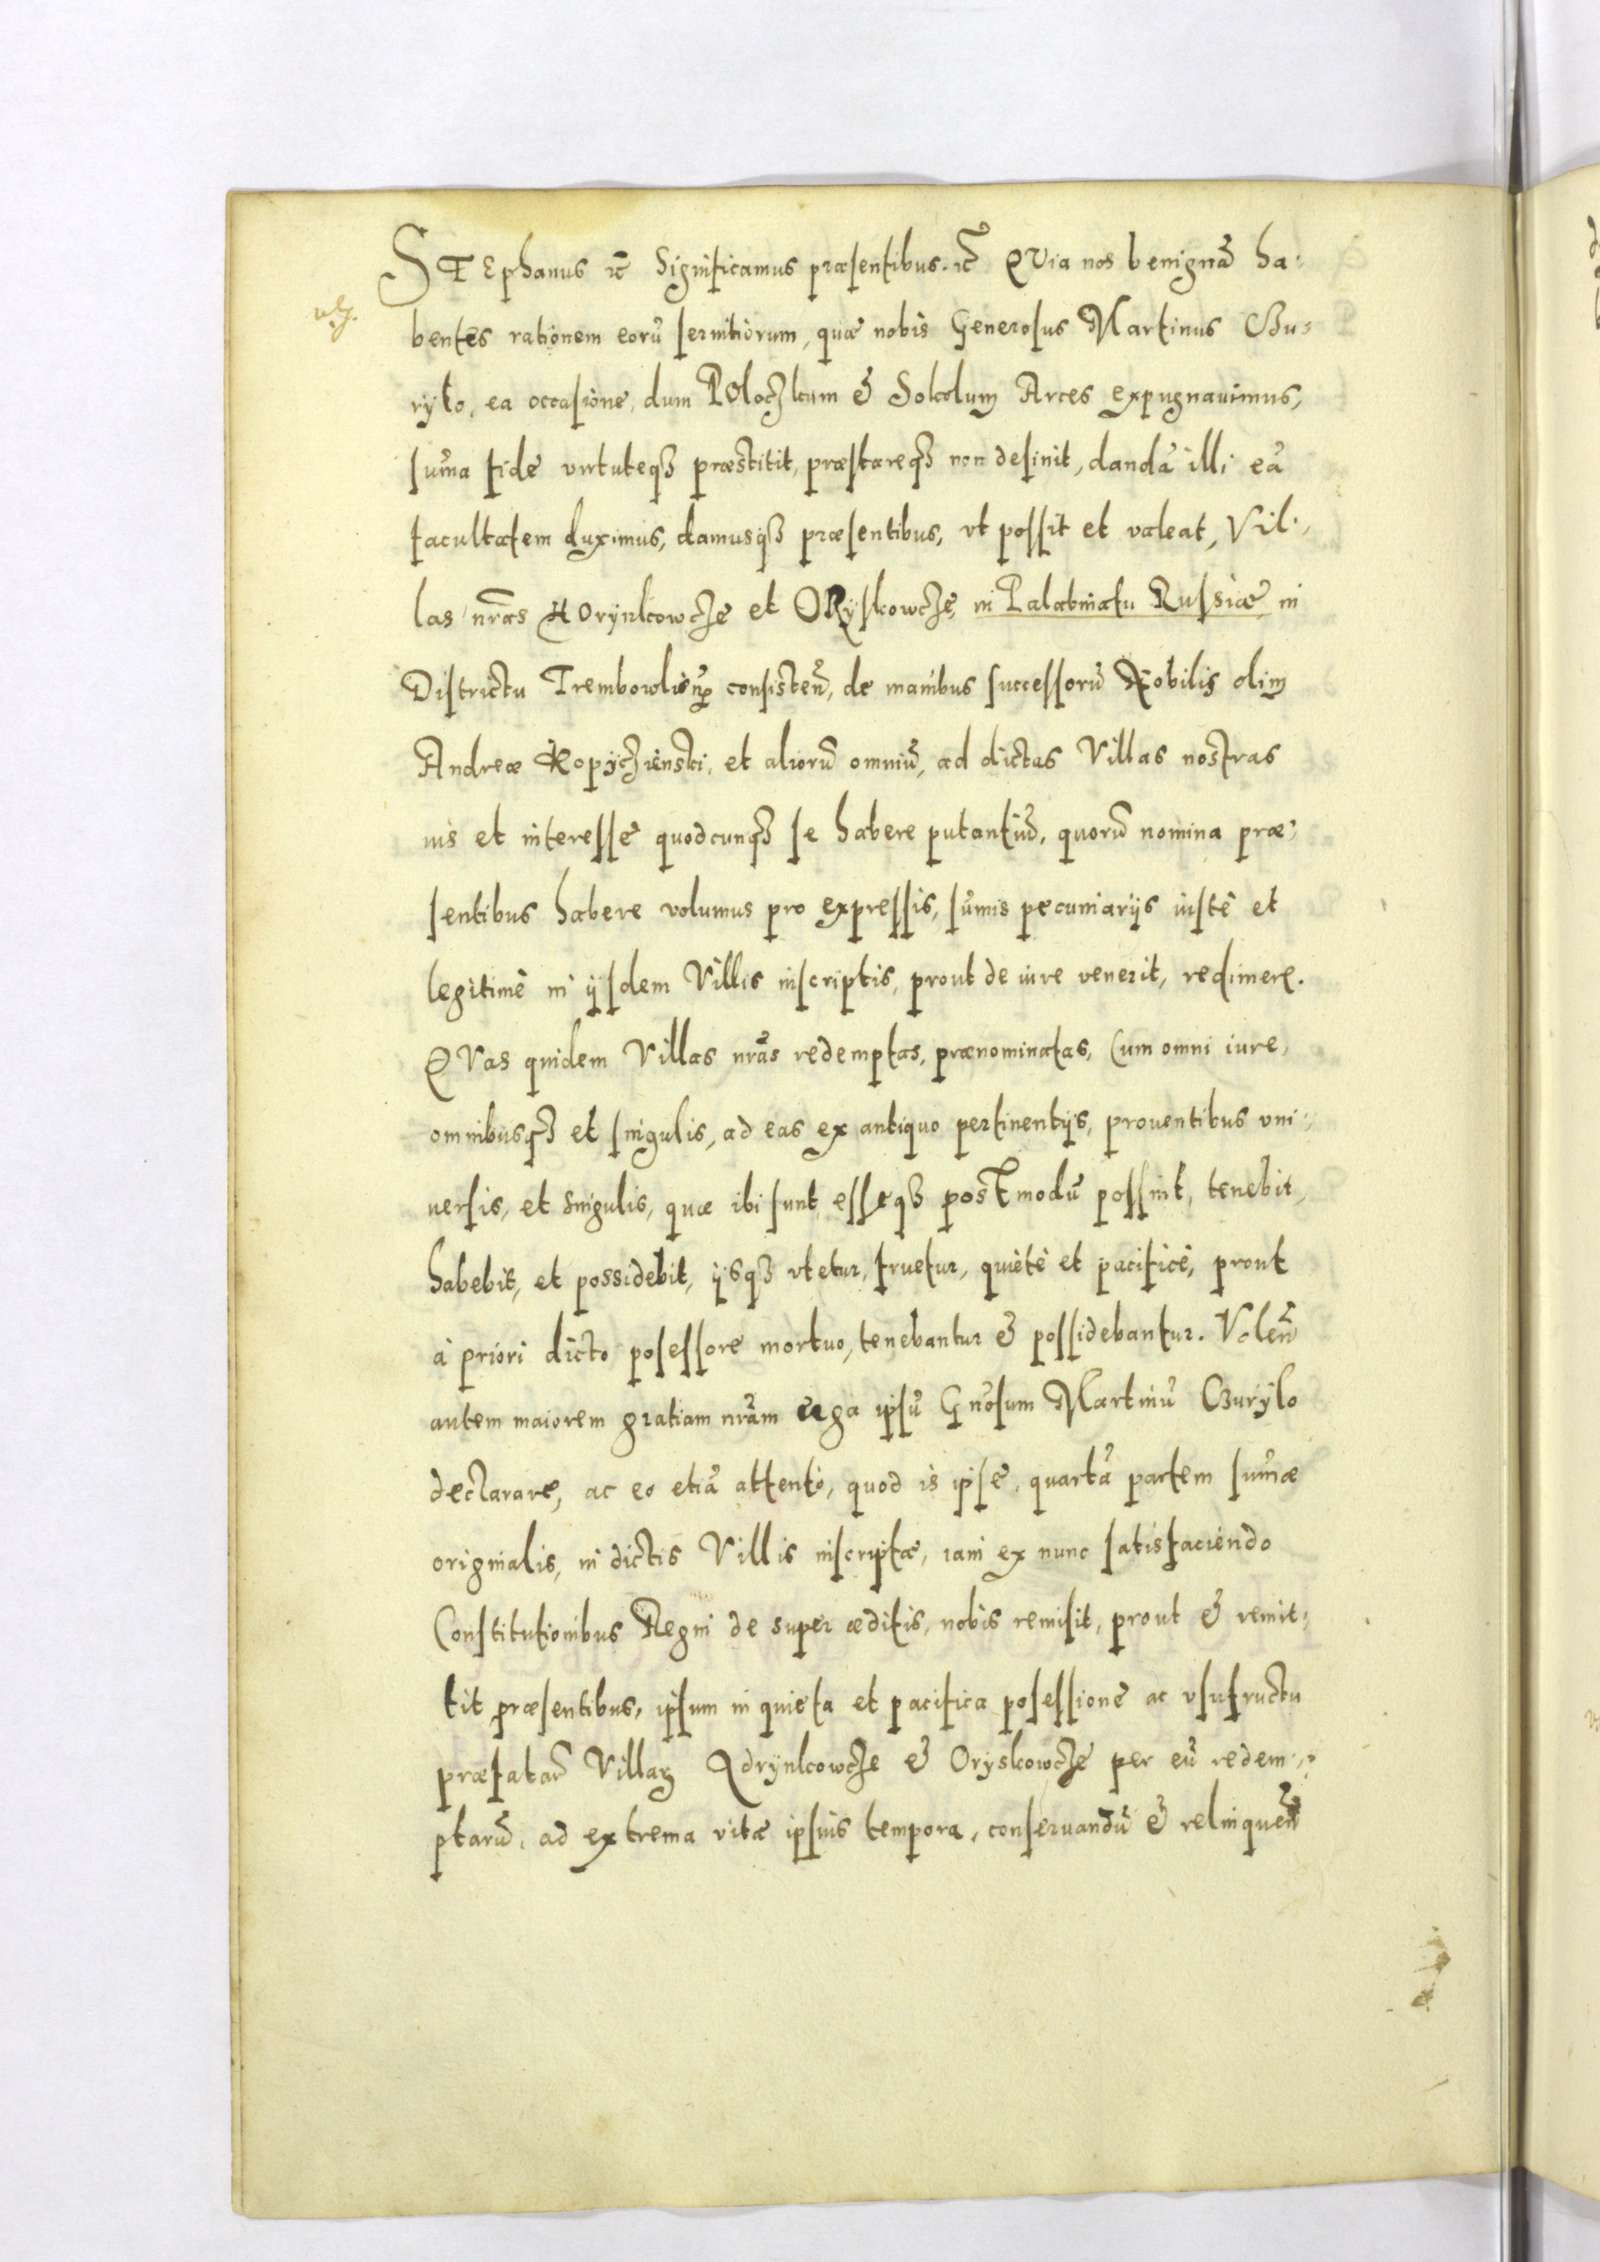 STEphanus etc̄ Significamus præsentibus. etc̄ QVia nos benignā ha-
bentes rationem eorū seruitiorum, quæ nobis Generosus Martinus Gu-
ryło, ea occasione, dum POloczkum & Sokolum Arces expugnauimus,
sūma fide virtuteqȝ præstitit, præstareqȝ non desinit, dandā illi eā
facultatem duximus, damusqȝ præsentibus, vt possit et valeat, Vil-
las nrās HOrynkowcze et ORyskowcze, in Palatinatu Russiæ, in
Districtu Trembowlien̄ consisten̄, de manibus successorū Nobilis olim
Andreæ Kopyczienski, et aliorū omniū, ad dictas Villas nostras
ius et interesse quodcunqȝ se habere putantiū, quorū nomina præ-
sentibus habere volumus pro expressis, sūmis pecuniarijs iustè et
legitimè in ijsdem Villis inscriptis, prout de iure venerit, redimere.
QVas quidem Villas nrās redemptas, prænominatas, Cum omni iure,
omnibusqȝ et singulis, ad eas ex antiquo pertinentijs, prouentibus vni-
uersis, et singulis, quæ ibi sunt esseqȝ postmodū possint, tenebit,
habebit, et possidebit, ijsqȝ vtetur, fruetur, quietè et pacificè, prout
à priori dicto posessore mortuo, tenebantur & possidebantur. Volen̄
autem maiorem gratiam nrām erga ipsū Gn̄osum Martinū Guryło
declarare, ac eo etiā attento, quod is ipse, quartā partem sūmæ
originalis, in dictis Villis inscriptæ, iam ex nunc satisfaciendo
Constitutionibus Regni de super æditis, nobis remisit, prout & remit-
tit præsentibus, ipsum in quieta et pacifica posessione ac vsufructu
præfatar̄ Villarꝫ Horynkowcze & Oryskowcze per eū redem-
ptarū, ad extrema vitæ ipsius tempora, conseruandū & relinquen̄